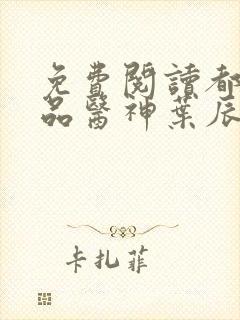 免費閱讀都
品醫神葉辰
卡扎菲